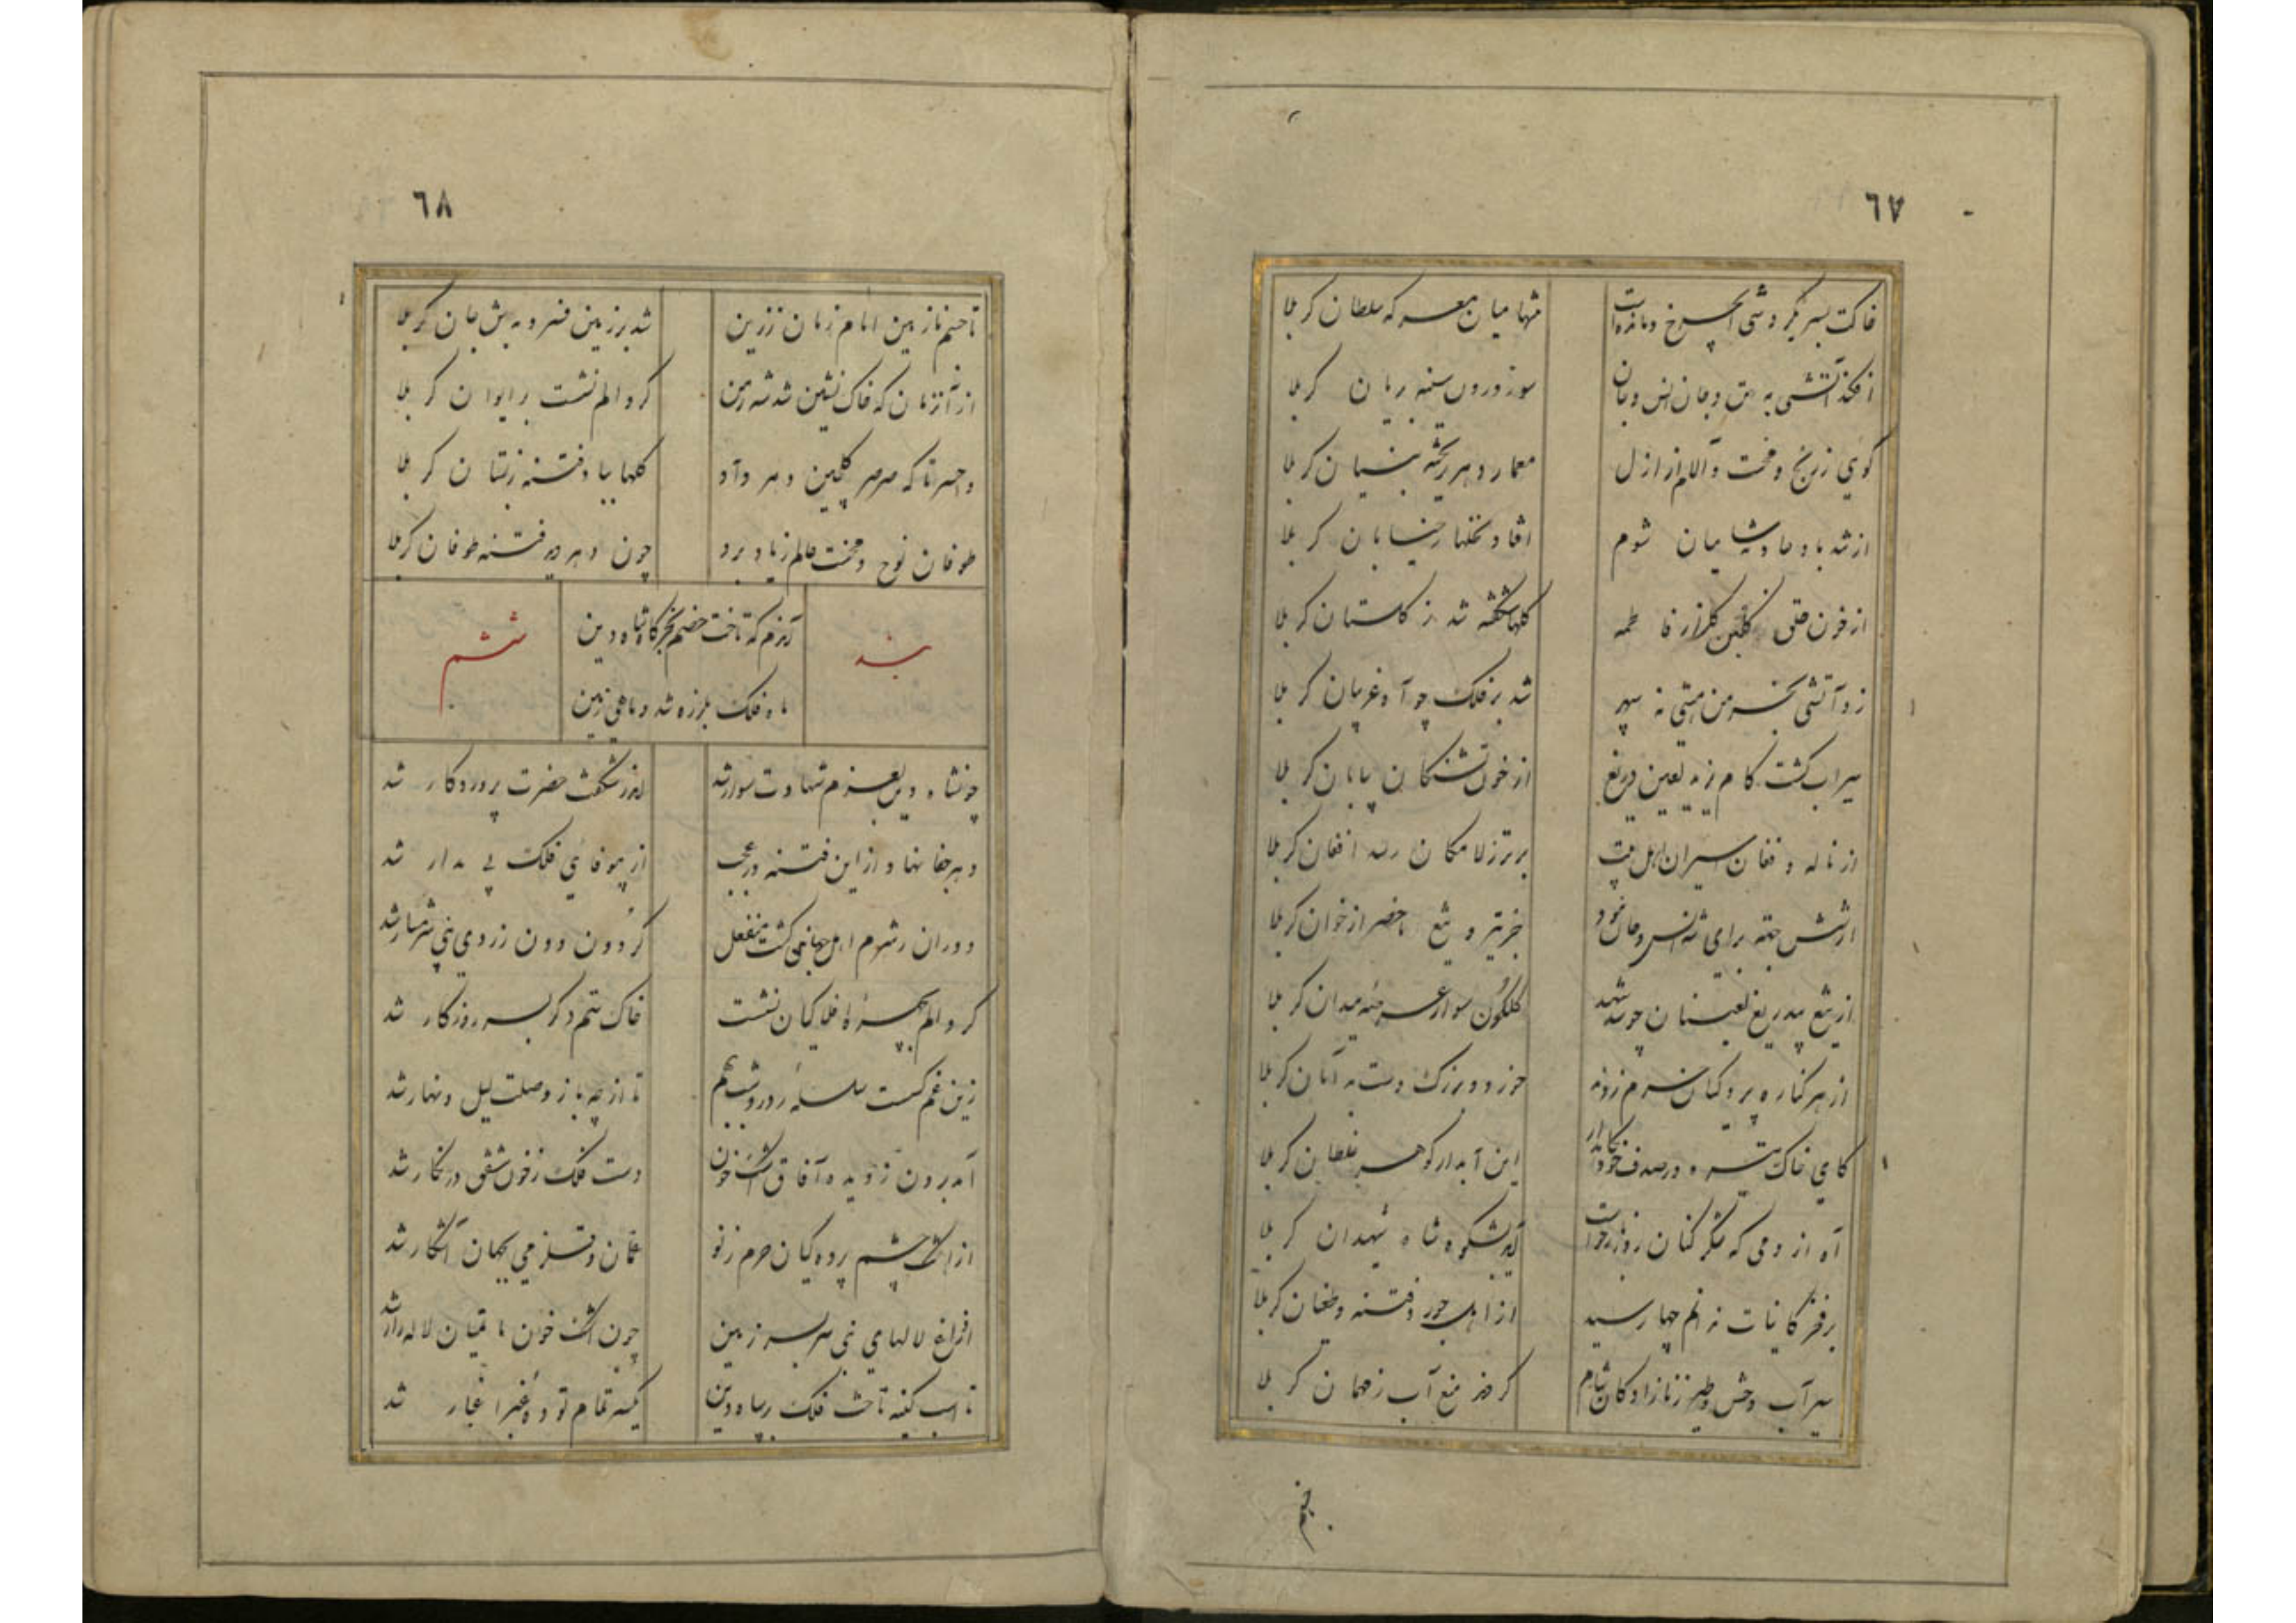 ٦٧
خاکت بسر نگر دشی ای چرخ و مانده است
تنها میان معرکه سلطان کربلا
افکند آتشی به تن و جان انس و جان
سوز درون سینه بریان کربلا
گویی ز رنج و محنت و آلام از ازل
معمار دهر ریخته بنیان کربلا
از تند باد حادثه شامیان شوم
افتاد نخلها ز خیابان کربلا
از خون حلق گلبن گلزار فاطمه
گلها شکفته شد ز گلستان کربلا
زد آتشی بخرمن هستی نه سپهر
شد بر فلک چو آه غریبان کربلا
سیراب گشت کام یزید لعین دریغ
از خون تشنگان بیابان کربلا
از ناله و فغان اسیران اهل بیت
برتر ز لامکان رسد افغان کربلا
از شش جهة برای شه انس و جان نبود
جز تیر و تیغ ماحضر از خوان کربلا
از تیغ بیدریغ لعینان چو شد شهید
گلگون سوار عرصه میدان کربلا
از هر کناره پردگیان حرم زدند
خورد و بزرگ دست بدامان کربلا
کامی خاک تیره در صدف خود نگاه دار
این آبدار گوهر غلطان کربلا
آه از دمی که شکر کنان روز بازخواست
آید بشکوه شاه شهیدان کربلا
بر فخر کاینات ندانم چها رسید
از اهل جور و فتنه و طغیان کربلا
سیر آب وحش و طیر ز نازادگان شام
کردند منع آب ز مهمان کربلا
٦٨
تا جسم نازنین امام زمان ز زین
شد بر زمین فسرد به تن جان کربلا
از آنزمان که خاک نشین شد شه زمن
گرد الم نشست بر ایوان کربلا
واحسرتا که صرصر گلچین دهر داد
گلها بباد فتنه ز بستان کربلا
طوفان نوح و محنت عالم ز یاد برد
چون دهر دید فتنه طوفان کربلا
بند
آندم که تاخت خصم بخرگاه شاه دین
ماه فلک بلرزه شد و ماهی زمین
ششم
چونشاه دین بعزم شهادت سوار شد
اندر شگفت حضرت پروردگار شد
دهر جفا نهاد از این فتنه در عجب
از بیوفایی فلک بی مدار شد
دوران ز شرم اهل جهان گشت منفعل
گردون دون ز روی نبی شرمسار شد
گرد الم بچهره افلاکیان نشست
خاک ستم دگر بسر روزگار شد
زین غم گسست سلسله روز و شب ز هم
تا از چه باز وصلت لیل و نهار شد
آمد برون ز دیده آفاق اشک خون
دست فلک ز خون شفق در نگار شد
از اشک چشم پرده کیان حرم ز نو
عمان و قلزمی بجهان آشکار شد
افراغ لالهای نبی سر بسر زمین
چون اشک خون ما تمیان لاله زار شد
تا اسب کینه تاخت فلک بر سپاه دین
یکسر تمام توده غبرا غبار شد